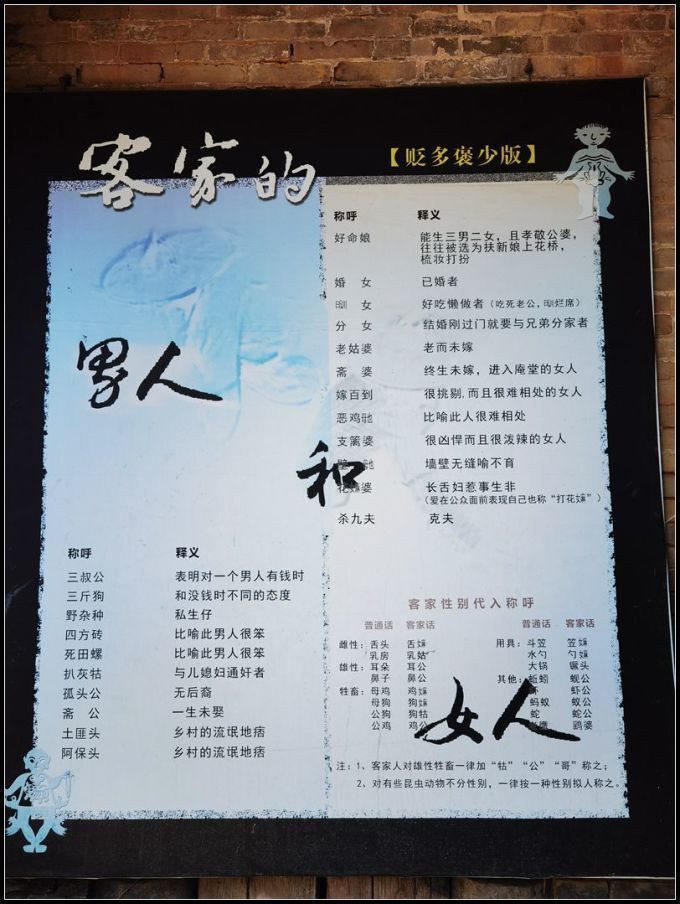 客家的
【贬多褒少版】
男人
和
女人
称呼 释义
好命娘 能生三男二女，且孝敬公婆，
往往被选为扶新娘上花桥，
梳妆打扮
婚 女 已婚者
女 好吃懒做者（吃死老公，烂席）
分 女 结婚刚过门就要与兄弟分家者
老姑婆 老而未嫁
斋 婆 终生未嫁，进入庵堂的女人
嫁百到 很挑剔，而且很难相处的女人
恶鸡 比喻此人很难相处
支篱婆 很凶悍而且很泼辣的女人
墙壁无缝喻不育
婆 长舌妇惹事生非
（爱在公众面前表现自己也称“打花嫲”）
杀九夫 克夫
称呼 释义
三叔公 表明对一个男人有钱时
三斤狗 和没钱时不同的态度
野杂种 私生仔
四方砖 比喻此男人很笨
死田螺 比喻此男人很笨
扒灰牯 与儿媳妇通奸者
孤头公 无后裔
斋 公 一生未娶
土匪头 乡村的流氓地痞
阿保头 乡村的流氓地痞
客家性别代入称呼
普通话 客家话 普通话 客家话
雌性：舌头 舌嫲 用具：斗笠 笠嫲
乳房 乳姑 水勺 勺嫲
雄性：耳朵 耳公 大锅 镢头
鼻子 鼻公 其他：蚯蚓 蚬公
牲畜：母鸡 鸡嫲 虾公
母狗 狗嫲 蚂蚁 蚁公
公狗 狗牯 蛇 蛇公
公鸡 鸡公 婆
注：1、客家人对雄性牲畜一律加“牯”“公”“哥”称之；
2、对有些昆虫动物不分性别，一律按一种性别拟人称之。